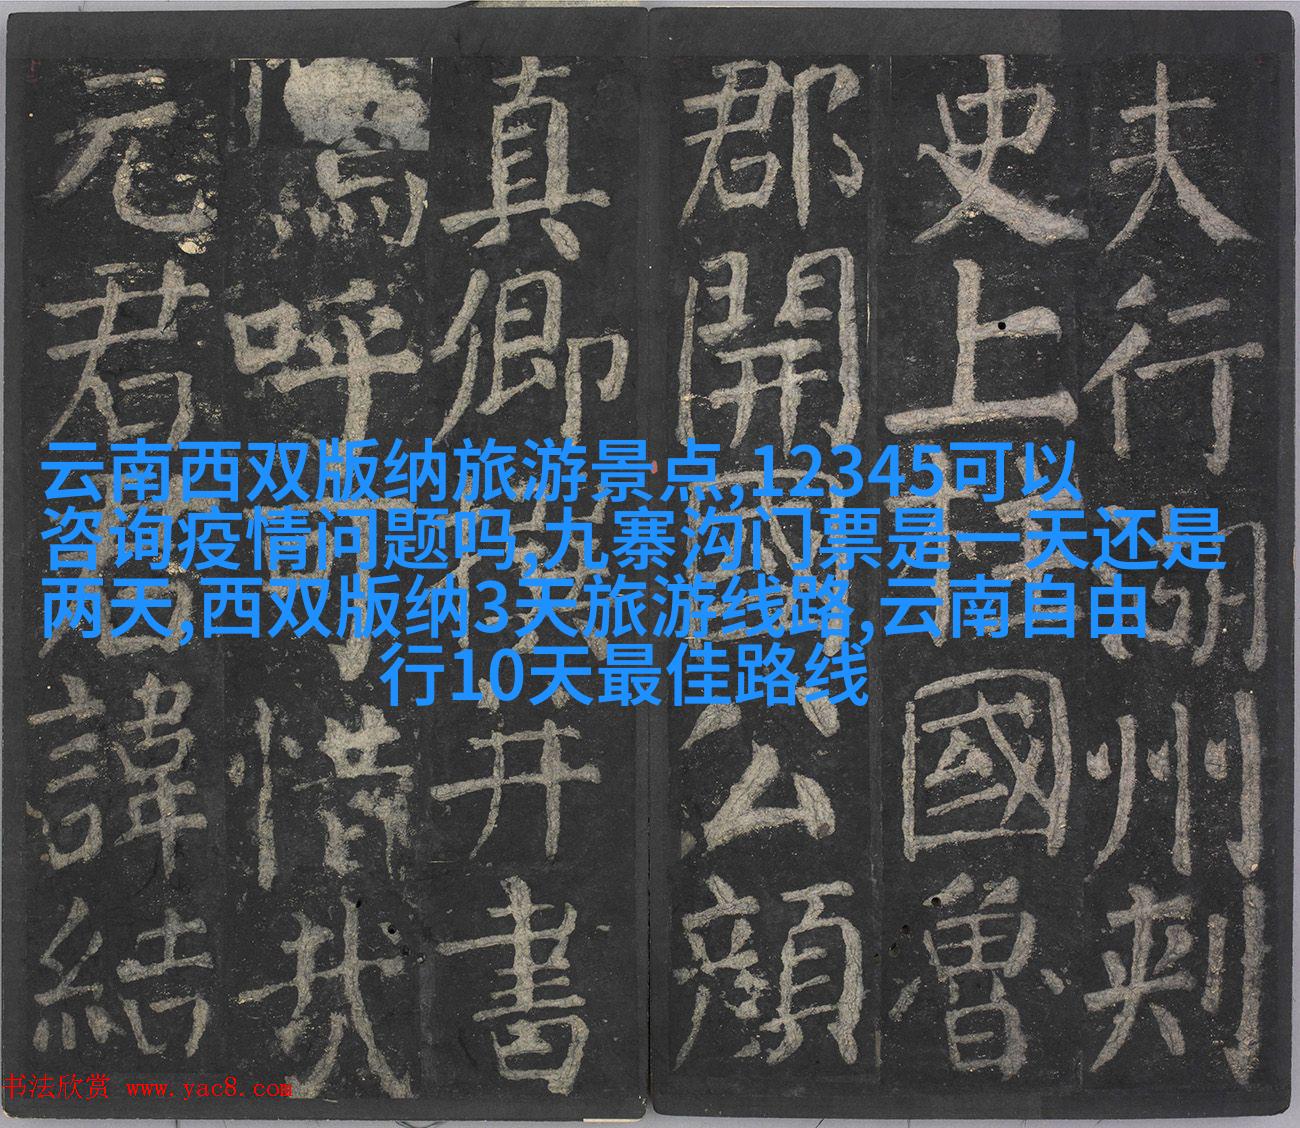 夫行湖州刺
史上柱國魯
郡開國公顏
真卿撰并書
嗚呼可惜哉
元君君諱結
云南西双版纳旅游景点,12345可以
咨询疫情问题吗,九寨沟门票是一天还是
两天,西双版纳3天旅游线路,云南自由
行10天最佳路线
书法欣赏 www.yac8.com